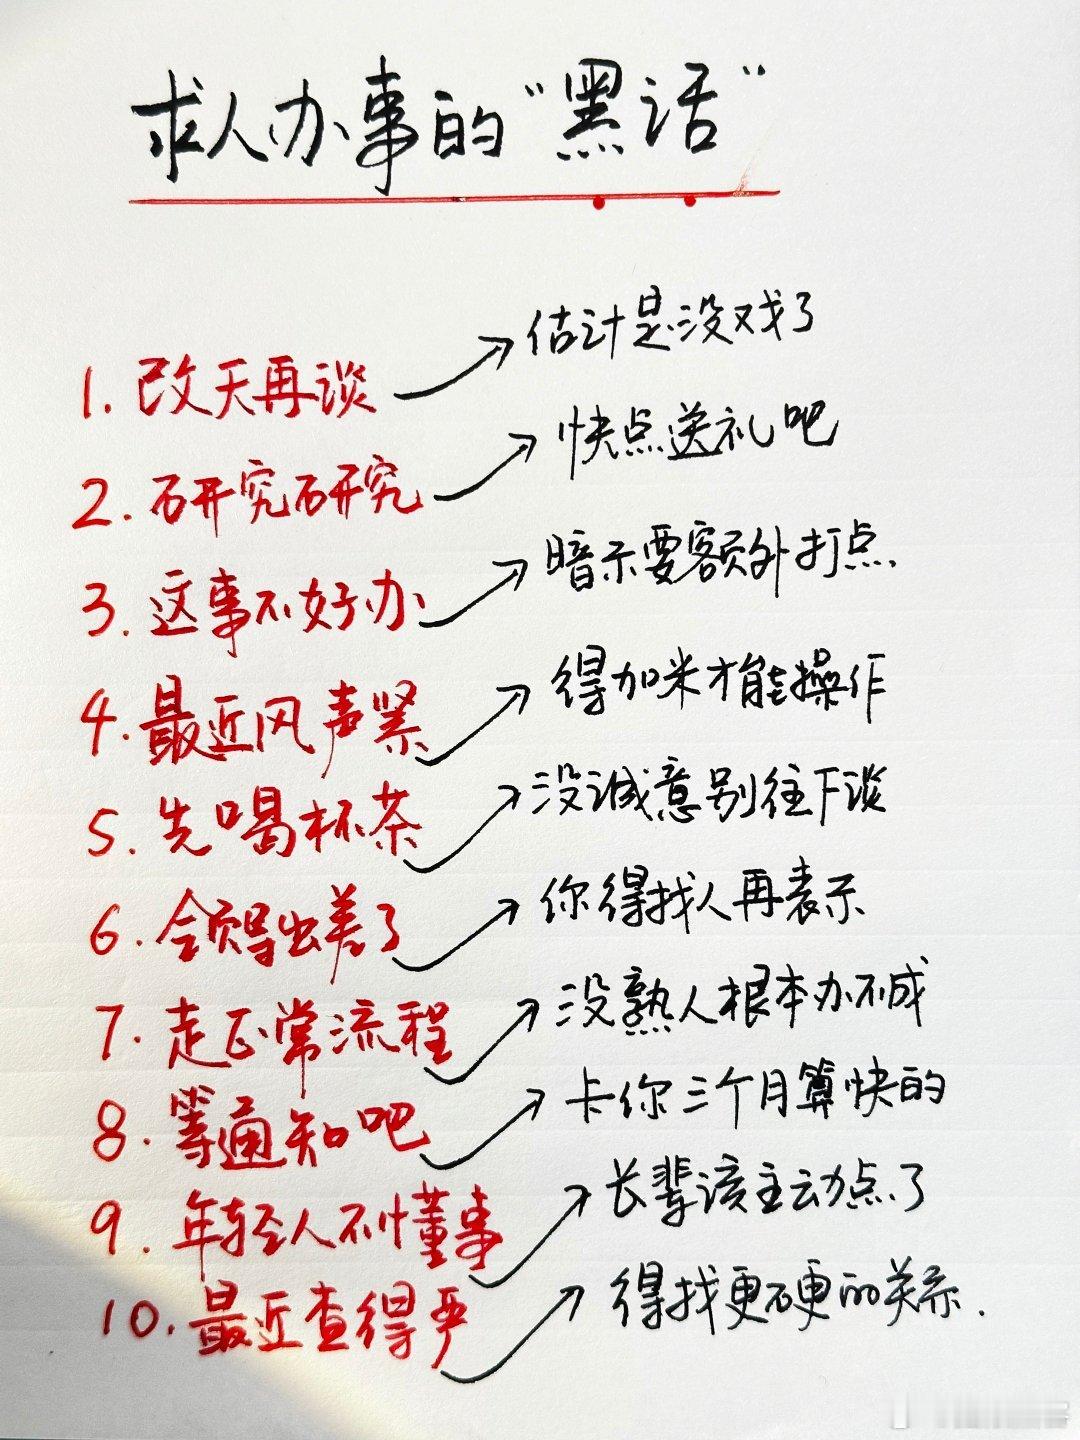 求人办事的“黑话”
1. 改天再谈 → 估计是没戏了
2. 研究研究 → 快点送礼吧
3. 这事不好办 → 暗示要额外打点
4. 最近风声紧 → 得加米才能操作
5. 先喝杯茶 → 没诚意别往下谈
6. 领导出差了 → 你得找人再表示
7. 走正常流程 → 没熟人根本办不成
8. 等通知吧 → 卡你三个月算快的
9. 年轻人不懂事 → 长辈该主动点了
10. 最近查得严 → 得找更硬的关系.